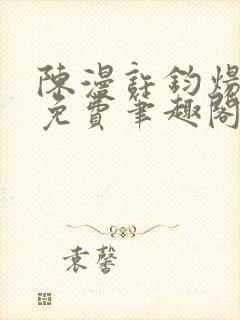 陳漫許鈞煬
免費筆趣閣
袁馨